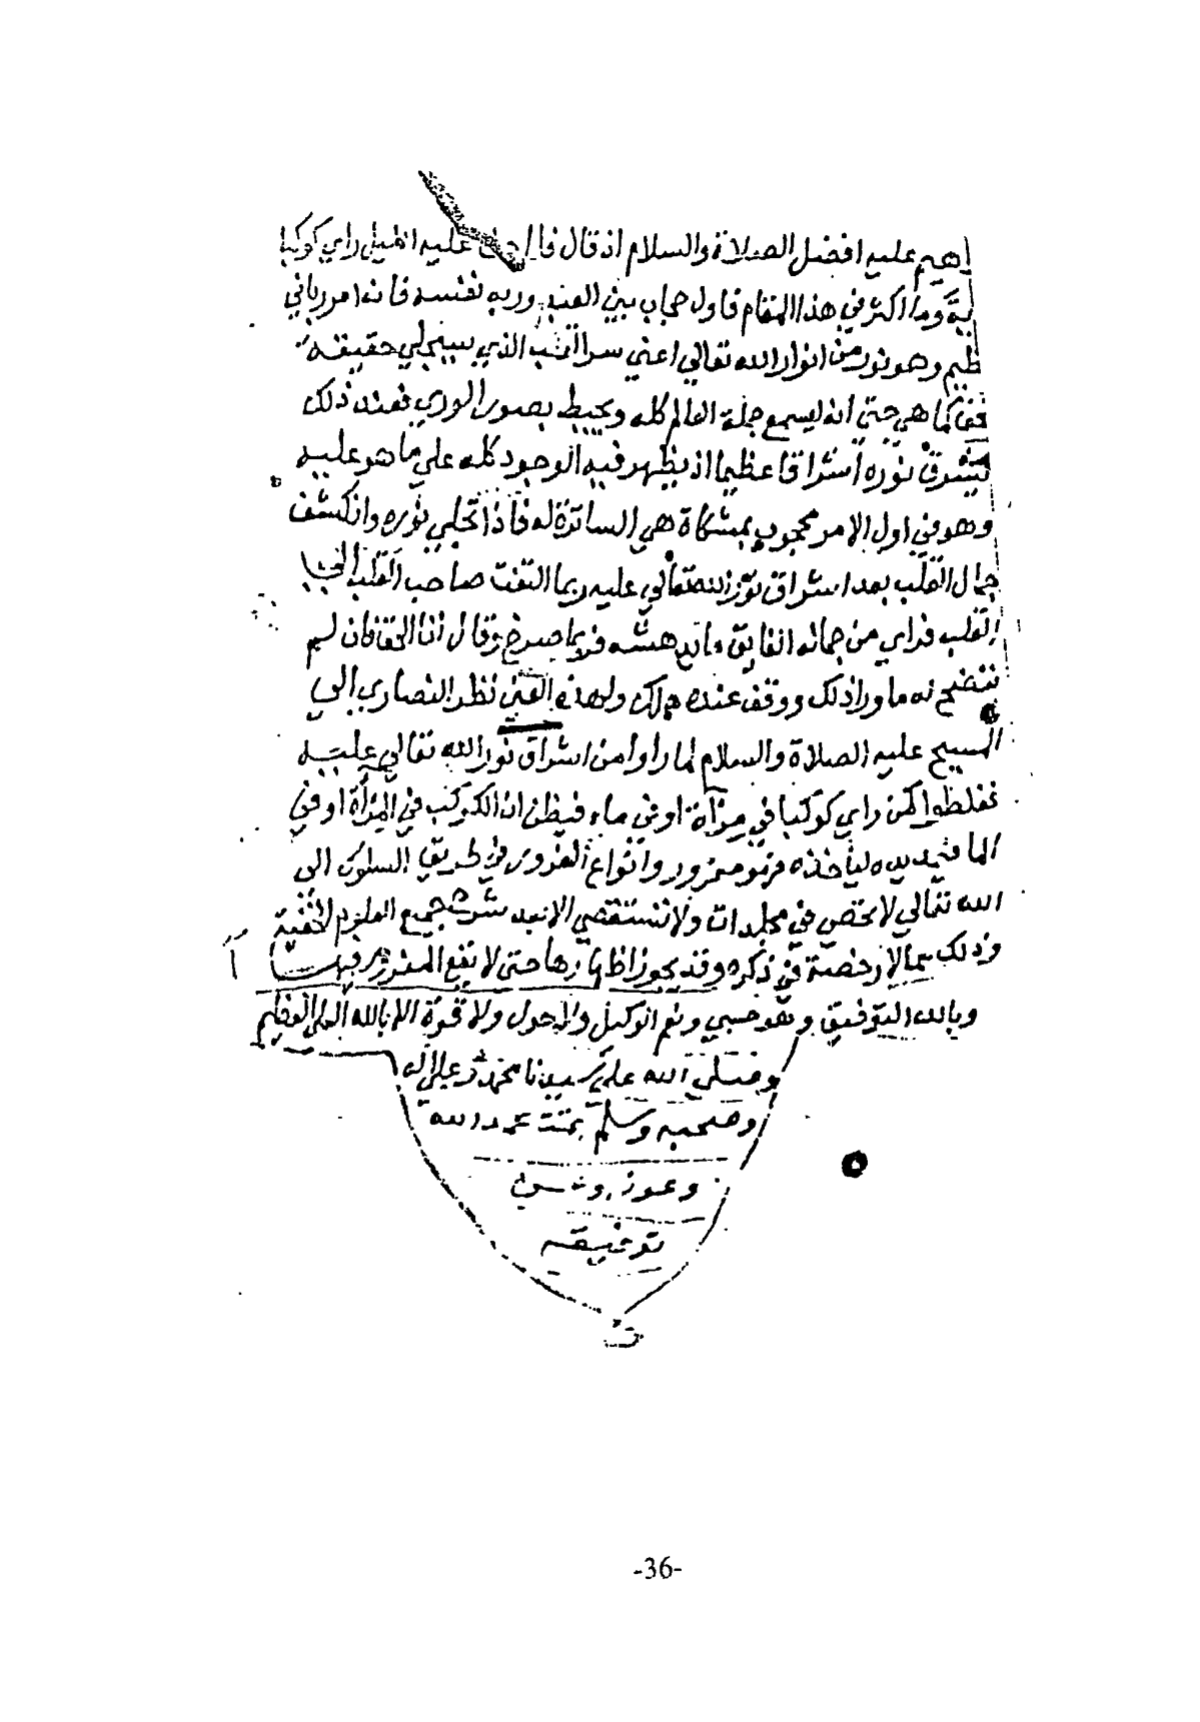 اهيم عليه افضل الصلاة والسلام اذ قال فال عليه الليل راي كوكبا
وما اكثر في هذا المقام فاول حجاب بين العبد وربه نفسه فانه امر رباني
ظيم وهو نور من انوار الله تعالي اعني سر القلب الذي سيتجلي حقيقة
كما هي حتي انه ليسع جملة العالم كله ويحيط بصور الوري فعند ذلك
يشرق نوره اشراقا عظيما اذ يظهر فيه الوجود كله علي ما هو عليه
وهو في اول الامر محجوب بمشكاة هي الساترة له فاذا تجلي نوره وانكشف
جمال القلب بعد اشراق نور الله تعالي عليه ربما التفت صاحب القلب الي
القلب فراي من جماله الفايق ما يدهشه فربما صرخ وقال انا الحق فان لم
يتضح له ما ورا ذلك ووقف عنده هلك ولهذه العين نظر النصاري الي
المسيح عليه الصلاة والسلام لما راوا من اشراق نور الله تعالي عليه
فغلطوا كمن راي كوكبا في مرآة او في ماء فيظن ان الكوكب في المرآة او في
الما فيمد يده لياخذه فهو مغرور وانواع الغرور في طريق السلوك الى
الله تعالي لا تحصي في مجلدات ولا تستقصي الا بعد شرح جميع العلوم الخفية
وذلك مما لا رخصة في ذكره وقد يجوز اظهارها حتى لا يقع المغرور فيها
وبالله التوفيق وهو حسبي ونعم الوكيل ولا حول ولا قوة الا بالله العلي العظيم
وصلي الله علي سيدنا محمد وعلي اله
وصحبه وسلم تمت بحمد الله
وعونه وحسن
توفيقه
-36-